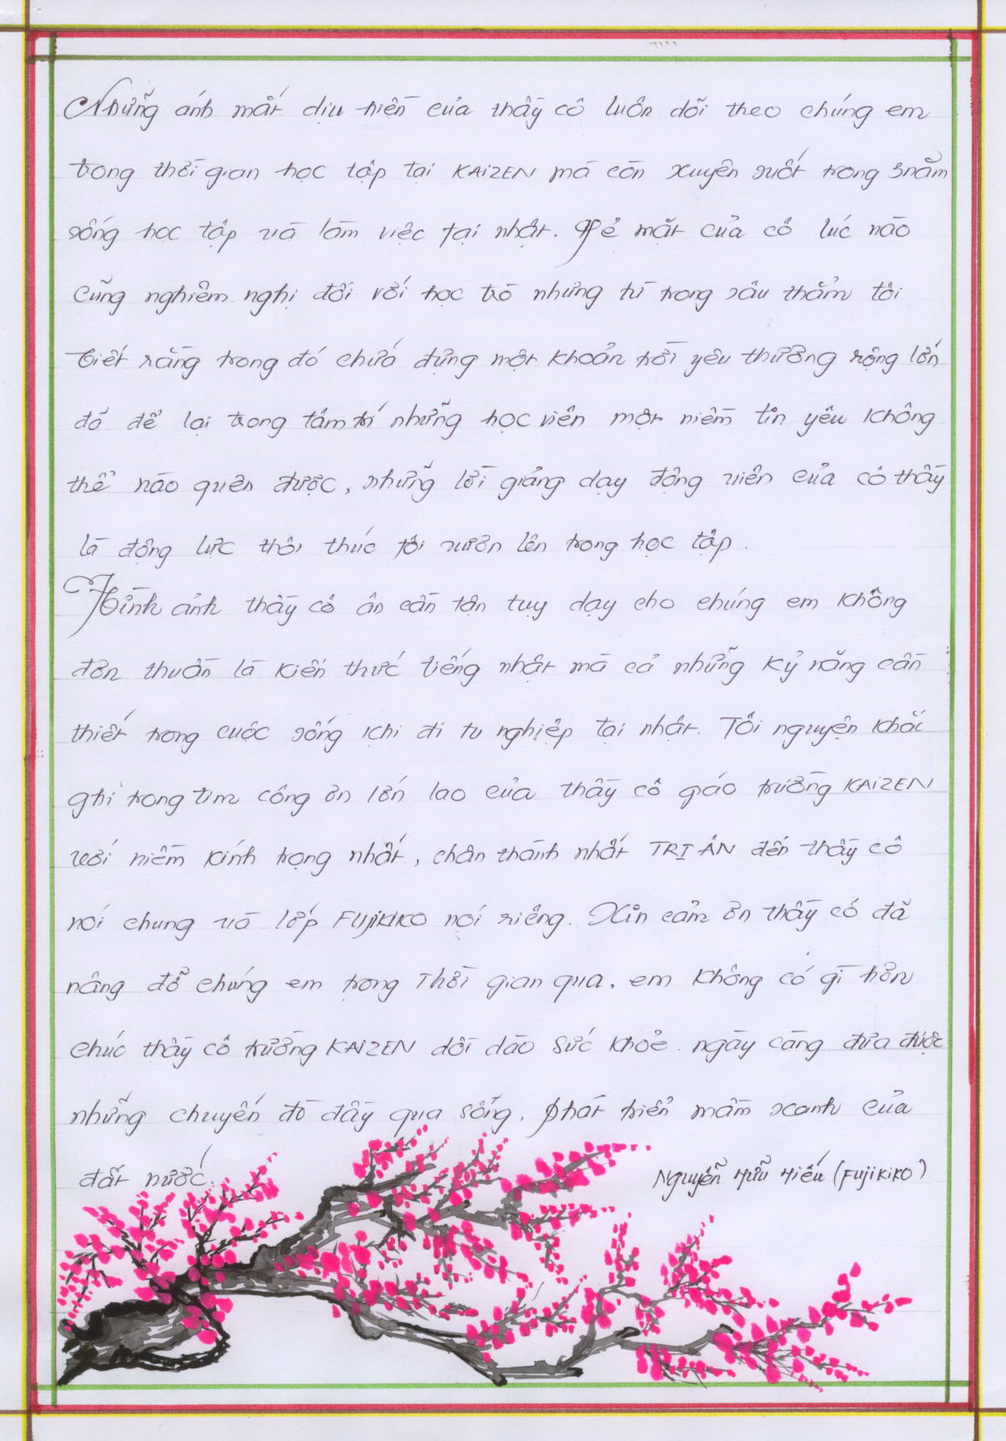 Những ánh mắt dịu hiền của thầy cô luôn dõi theo chúng em
trong thời gian học tập tại KAiZEN mà còn xuyên suốt trong 3 năm
sống học tập và làm việc tại nhật. Vẻ mặt của cô lúc nào
cũng nghiêm nghị đối với học trò nhưng từ trong sâu thẳm tôi
biết rằng trong đó chứa đựng một khoản trời yêu thương rộng lớn
đó để lại trong tâm trí những học viên một niềm tin yêu không
thể nào quên được, những lời giảng dạy động viên của cô thầy
là động lực thôi thúc tôi vươn lên trong học tập.
Hình ảnh thầy cô ân cần tận tụy dạy cho chúng em không
đơn thuần là kiến thức tiếng nhật mà cả những kỷ năng cần
thiết trong cuộc sống khi đi tu nghiệp tại nhật. Tôi nguyện khắc
ghi trong tim công ơn lớn lao của thầy cô giáo trường KAiZEN
với niềm kính trọng nhất, chân thành nhất TRI ÂN đến thầy cô
nói chung và lớp FUJiKIKO nói riêng. Xin cảm ơn thầy cô đã
nâng đỡ chúng em trong Thời gian qua. em không có gì hơn
chúc thầy cô trường KAiZEN dồi dào sức khỏe. ngày càng đưa được
những chuyến đò đầy qua sông, phát triển mầm xanh của
đất nước.
Nguyễn Hữu Hiếu (FujiKiKO)